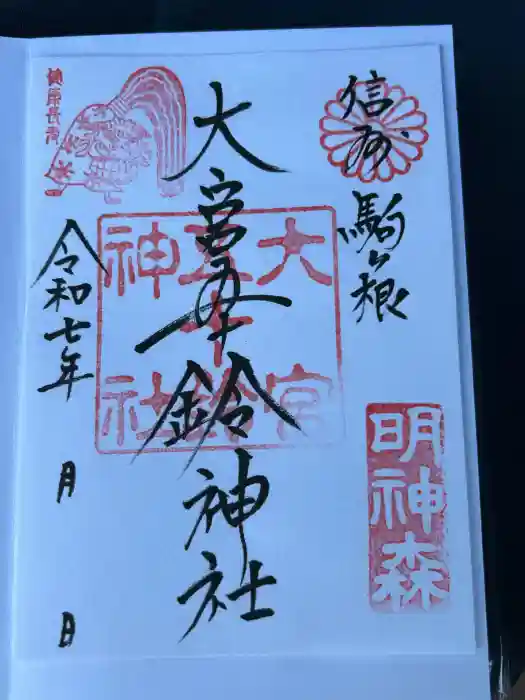 信州
駒ヶ根
明神森
大宮五十鈴神社
大宮
五十鈴
神社
健康長寿
令和七年 月 日